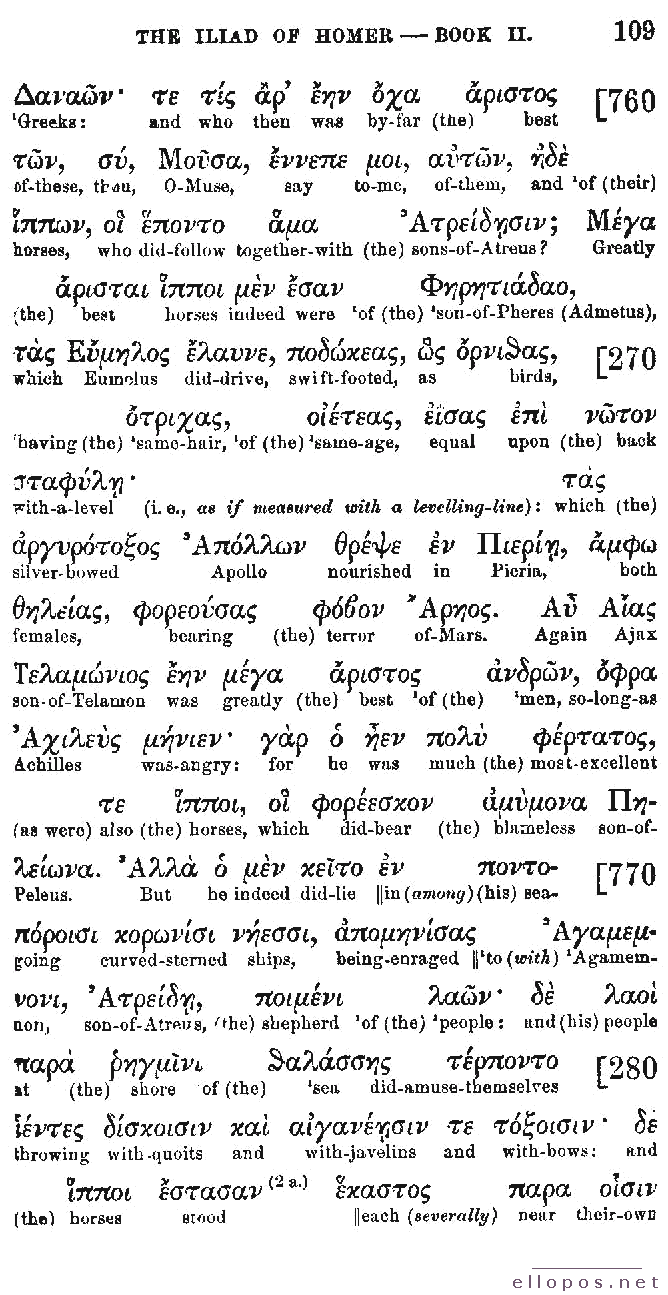 THE ILIAD OF HOMER — BOOK II. 109
Δαναῶν· τε τίς ἂρ’ ἔην ὄχα ἄριστος [760
'Greeks: and who then was by-far (the) best
τῶν, σύ, Μοῦσα, ἔννεπε μοι, αὐτῶν, ἠδὲ
of-these, thou, O-Muse, say to-me, of-them, and 'of (their)
ἵππων, οἳ ἕποντο ἅμα Ἀτρείδησιν; Μέγα
horses, who did-follow together-with (the) sons-of-Atreus? Greatly
ἄρισται ἵπποι μὲν ἔσαν Φηρητιάδαο,
(the) best horses indeed were 'of (the) 'son-of-Pheres (Admetus),
τὰς Εὔμηλος ἔλαυνε, ποδώκεας, ὣς ὄρνιθας, [270
which Eumelus did-drive, swift-footed, as birds,
ὄτριχας, οἰέτεας, ἐΐσας ἐπὶ νῶτον
'having (the) 'same-hair, 'of (the) 'same-age, equal upon (the) back
σταφύλῃ· τὰς
with-a-level (i. e., as if measured with a levelling-line): which (the)
ἀργυρότοξος Ἀπόλλων θρέψε ἐν Πιερίῃ, ἄμφω
silver-bowed Apollo nourished in Pieria, both
θηλείας, φορεούσας φόβον Ἄρηος. Αὖ Αἴας
females, bearing (the) terror of-Mars. Again Ajax
Τελαμώνιος ἔην μέγα ἄριστος ἀνδρῶν, ὄφρα
son-of-Telamon was greatly (the) best 'of (the) 'men, so-long-as
Ἀχιλεὺς μήνιεν· γὰρ ὁ ἦεν πολὺ φέρτατος,
Achilles was-angry: for he was much (the) most-excellent
τε ἵπποι, οἳ φορέεσκον ἀμύμονα Πη-
(as were) also (the) horses, which did-bear (the) blameless son-of-
λείωνα. Ἀλλὰ ὁ μὲν κεῖτο ἐν ποντο- [770
Peleus. But he indeed did-lie ||in (among) (his) sea-
πόροισι κορωνίσι νήεσσι, ἀπομηνίσας Ἀγαμεμ-
going curved-sterned ships, being-enraged ||'to (with) 'Agamem-
νονι, Ἀτρείδῃ, ποιμένι λαῶν· δὲ λαοὶ
non, son-of-Atreus, (the) shepherd 'of (the) 'people: and (his) people
παρὰ ῥηγμῖνι θαλάσσης τέρποντο [280
at (the) shore of (the) 'sea did-amuse-themselves
ἱέντες δίσκοισιν καὶ αἰγανέῃσιν τε τόξοισιν· δὲ
throwing with-quoits and with-javelins and with-bows: and
ἵπποι ἔστασαν (2 a.) ἕκαστος παρα οἷσιν
(the) horses stood ||each (severally) near their-own
ellopos.net